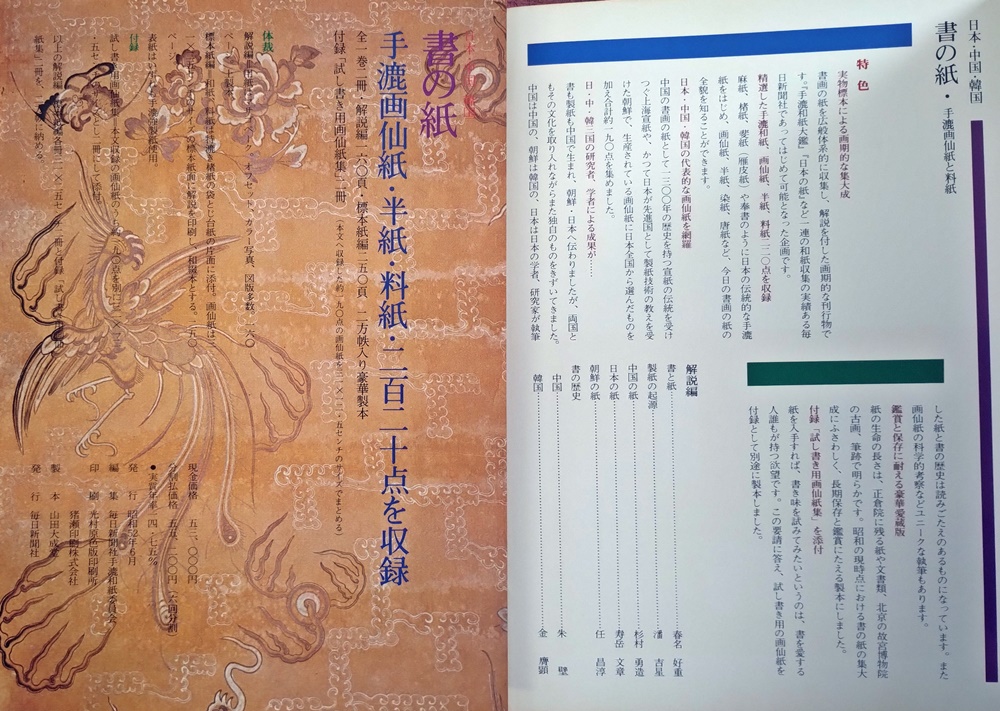 日本・中国・韓国
書の紙・手漉画仙紙と料紙
特色
実物標本による画期的な集大成
書画の紙を広般体系的に収集し、解説を付した画期的な刊行物で
す。『手漉和紙大鑑』『日本の紙』など一連の和紙収集の実績ある毎
日新聞社であってはじめて可能となった企画です。
精選した手漉和紙、画仙紙、半紙、料紙二二〇点を収録
麻紙、楮紙、斐紙（雁皮紙）や奉書のように日本の伝統的な手漉
紙をはじめ、画仙紙、半紙、染紙、唐紙など、今日の書画の紙の
全貌を知ることができます。
日本・中国・韓国の代表的な画仙紙を網羅
中国の書画の紙として一三〇〇年の歴史を持つ宣紙の伝統を受け
つぐ上海宣紙や、かつて日本が先進国として製紙技術の教えを受
けた朝鮮で、生産されている画仙紙に日本全国から選んだものを
加え合計約一九〇点を集めました。
日・中・韓三国の研究者、学者による成果が……
書も製紙も中国で生まれ、朝鮮・日本へ伝わりましたが、両国と
もその文化を取り入れながらまた独自のものをきずいてきました。
中国は中国の、朝鮮は韓国の、日本は日本の学者、研究家が執筆
した紙と書の歴史は読みごたえのあるものになっています。また
画仙紙の科学的考察などユニークな執筆もあります。
鑑賞と保存に耐える豪華愛蔵版
紙の生命の長さは、正倉院に残る紙や文書類、北京の故宮博物院
の古画、筆跡で明らかです。昭和の現時点における書の紙の集大
成にふさわしく、長期保存と鑑賞にたえる製本にしました。
付録「試し書き用画仙紙集」を添付
紙を入手すれば、書き味を試みてみたいというのは、書を愛する
人誰もが持つ欲望です。この要請に答え、試し書き用の画仙紙を
付録として別途に製本しました。
解説編
書と紙……春名 好重
製紙の起源……潘 吉星
中国の紙……杉村 勇造
日本の紙……寿岳 文章
朝鮮の紙……任 昌淳
書の歴史
中国……朱 璧
韓国……金 膺顕
日本・中国・韓国
書の紙
手漉画仙紙・半紙・料紙・二百二十点を収録
全一巻二冊・解説編一六〇頁・標本紙編二五〇頁 二方帙入り豪華製本
付録「試し書き用画仙紙集」二冊（本文へ収録した約一九〇点の画仙紙を二一×一二・五センチのサイズでまとめる）
体裁
付録
現金価格 五三、〇〇〇円
分割払価格 五五、二〇〇円（六回分割）
●実質年率一四・七五％
発行 昭和52年6月
編集 毎日新聞社手漉和紙委員会
印刷 光村原色版印刷所
猪瀬印刷株式会社
製本 山田大成堂
発行 毎日新聞社